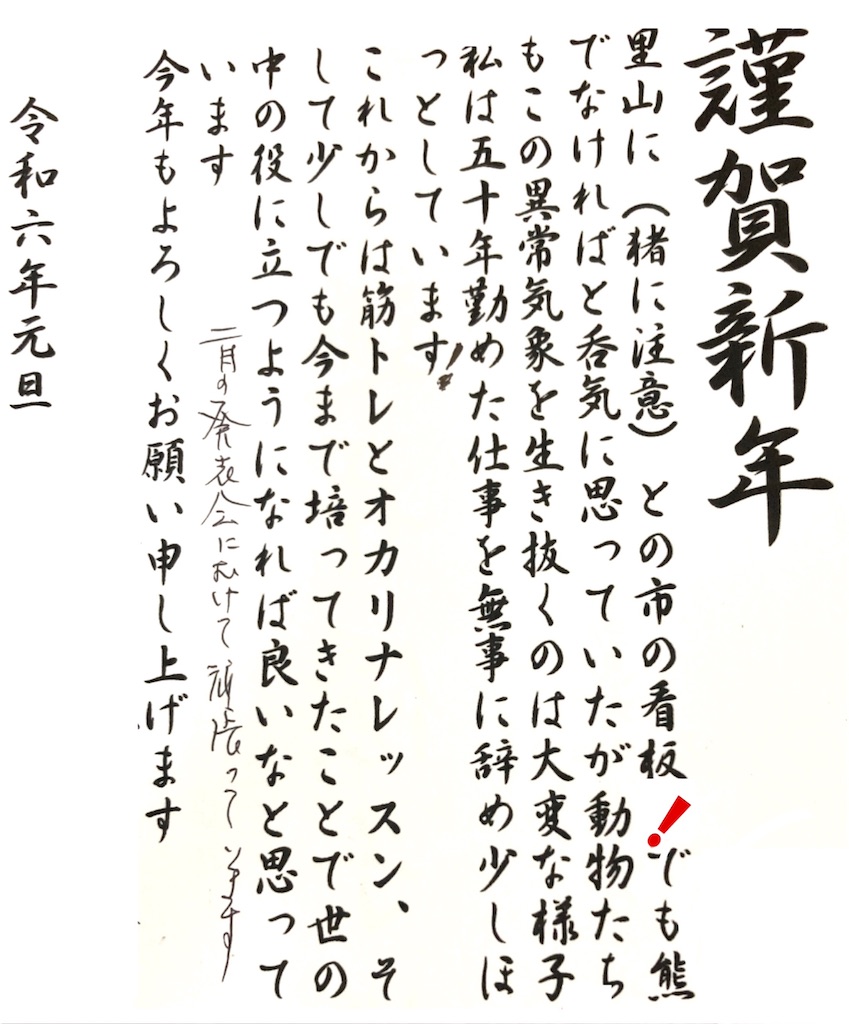 謹賀新年
里山に（猪に注意）との市の看板❗でも熊
でなければと呑気に思っていたが動物たち
もこの異常気象を生き抜くのは大変な様子
私は五十年勤めた仕事を無事に辞め少しほ
っとしています!
これからは筋トレとオカリナレッスン、そ
して少しでも今まで培ってきたことで世の
中の役に立つようになれば良いなと思って
います
二月の発表会にむけて頑張っています
今年もよろしくお願い申し上げます
令和六年元旦